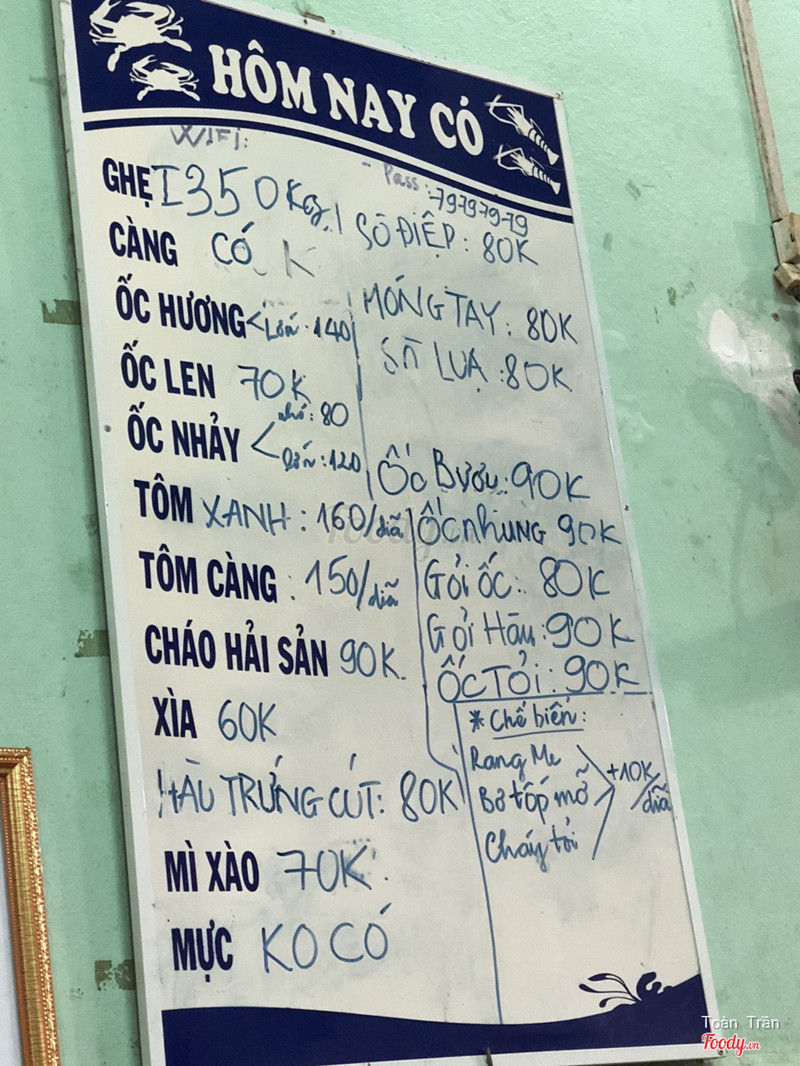 HÔM NAY CÓ
WIFI:
- Pass: 79797979
GHẸ I 350Kg
CÀNG CÓ K
ỐC HƯƠNG < Lớn: 140
ỐC LEN 70K
ỐC NHẢY < nhỏ: 80
Lớn: 120
TÔM XANH: 160/dĩa
TÔM CÀNG: 150/dĩa
CHÁO HẢI SẢN 90K
XÌA 60K
HÀU TRỨNG CÚT: 80K
MÌ XÀO 70K
MỰC KO CÓ
SÒ ĐIỆP: 80K
MÓNG TAY: 80K
SÒ LUẠ: 80K
ỐC Bươu: 90K
ỐC nhung 90K
Gỏi ốc: 80K
Gỏi Hàu: 90K
ỐC TỎI: 90K
* Chế biến:
Rang Me
Bơ tốp mỡ
Cháy tỏi
+10K/dĩa
Toàn Trần
Foody.vn